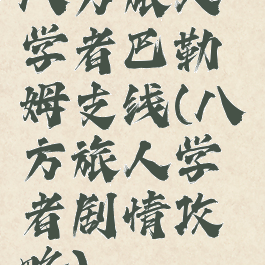 八方旅人
学者巴勒
姆支线(八
方旅人学
者剧情攻
略)